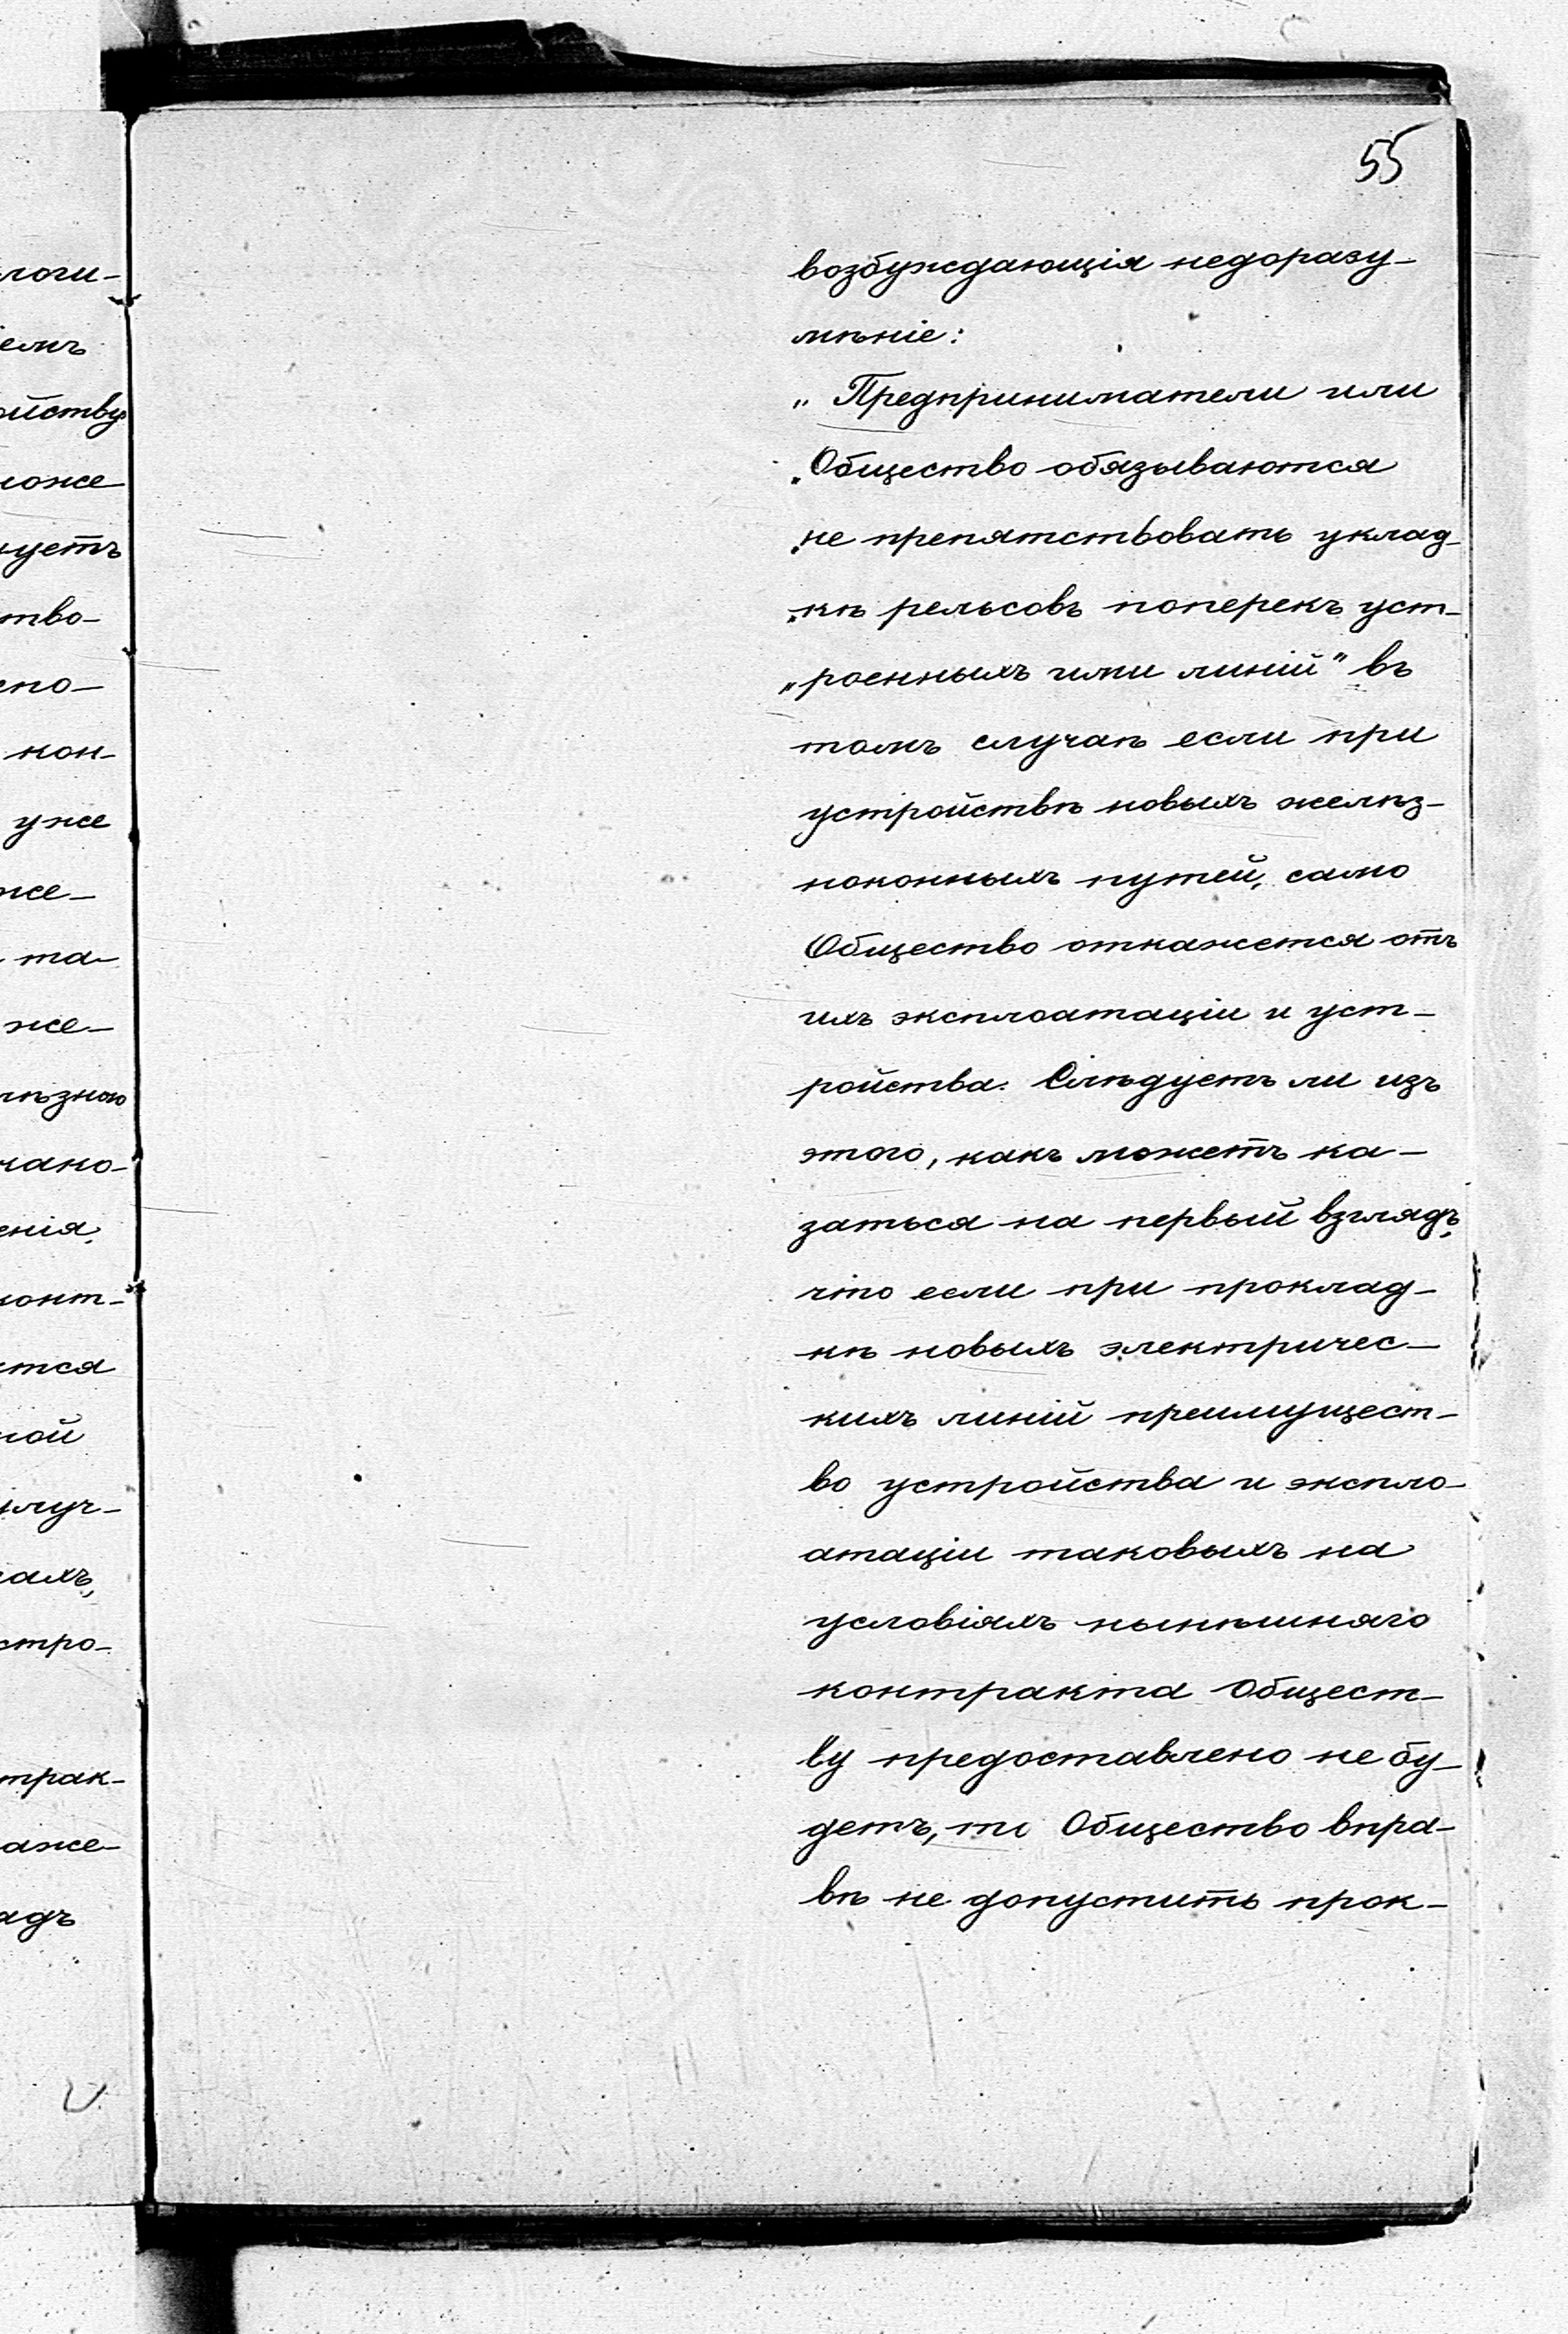 55
возбуждающія недоразу-
мѣніе:
„Предприниматели или
„Общество обязываются
„не препятствовать уклад-
„кѣ рельсовъ поперекъ уст-
„роенныхъ ими линій" въ
томъ случаѣ если при
устройствѣ новыхъ желѣз-
ноконныхъ путей, само
Общество откажется отъ
ихъ эксплоатаціи и уст-
ройства. Слѣдуетъ ли изъ
этого, какъ можетъ ка-
заться на первый взглядъ,
что если при проклад-
кѣ новыхъ электричес-
кихъ линій преимущест-
во устройства и экспло-
атаціи таковыхъ на
условіяхъ нынѣшняго
контракта Общест-
ву предоставлено не бу-
детъ, то Общество впра-
вѣ не допустить прок-